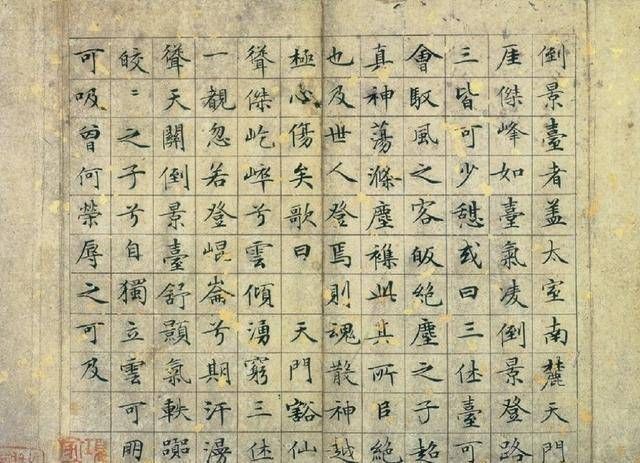 倒景臺者蓋太室南麓天門
厓傑峰如臺氣凌倒景登路
三皆可少憩或曰三休臺可
會馭風之客皈絕塵之子超
真神蕩滌塵襍此其所臣絕
也及世人登焉則魂散神越
極心傷矣歌曰 天門豁仙
聳傑屹崒兮雲傾湧窮三休
一覩忽若登崐崙兮期汗漫
聳天關倒景臺舒顥氣軼嚻
皎〻之子兮自獨立雲可朋
可吸曾何榮辱之可及